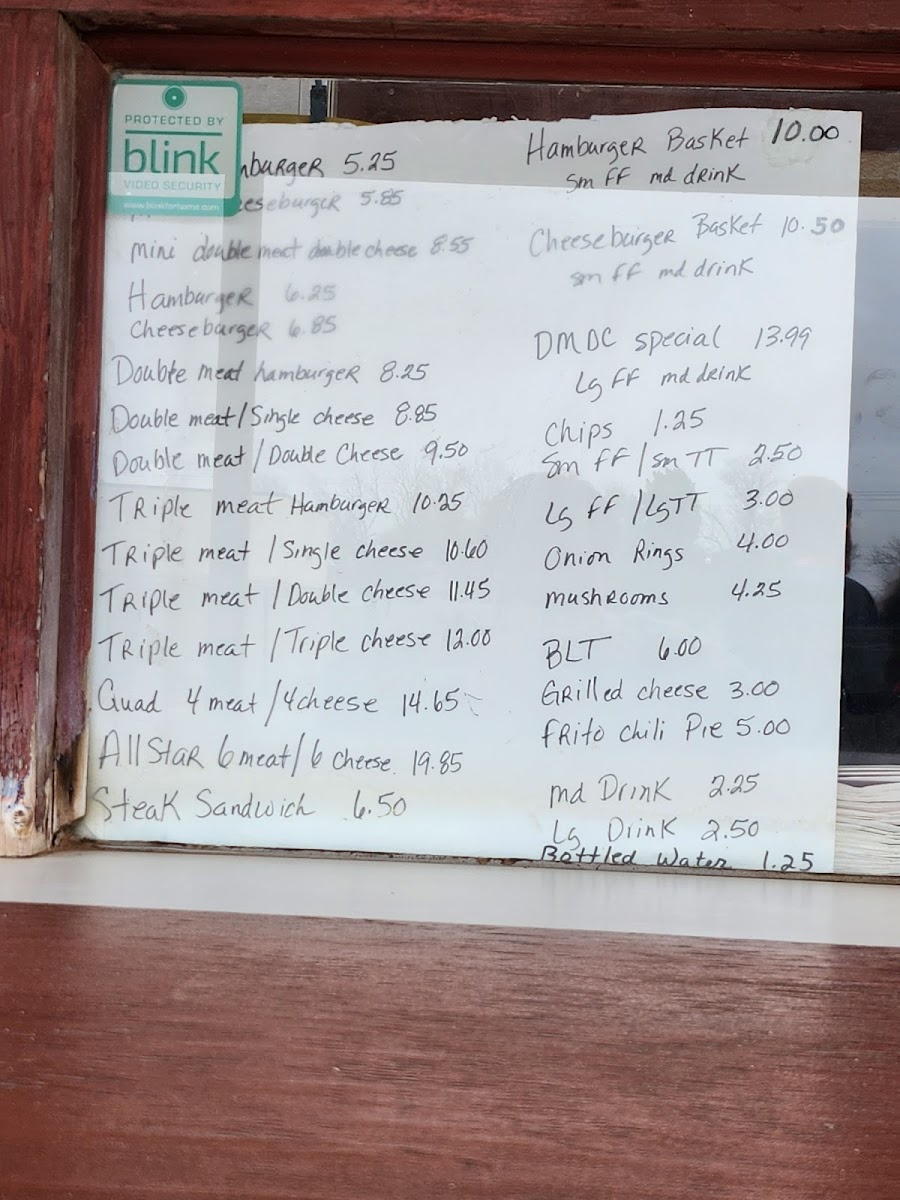 PROTECTED BY
blink
VIDEO SECURITY
www.blinkforhome.com
5.25
5.85
mini double meat double cheese 8.55
Hamburger 6.25
Cheeseburger 6.85
Double meat hamburger 8.25
Double meat/Single cheese 8.85
Double meat/Double Cheese 9.50
Triple meat Hamburger 10.25
Triple meat/Single cheese 10.60
Triple meat/Double cheese 11.45
Triple meat/Triple cheese 12.00
Quad 4 meat/4 cheese 14.65
All Star 6 meat/6 cheese 19.85
Steak Sandwich 6.50
Hamburger Basket 10.00
sm FF md drink
Cheeseburger Basket 10.50
sm FF md drink
DMDC special 13.99
Lg FF md drink
Chips 1.25
Sm FF/Sm TT 2.50
Lg FF/Lg TT 3.00
Onion Rings 4.00
mushrooms 4.25
BLT 6.00
Grilled cheese 3.00
Frito chili Pie 5.00
md Drink 2.25
Lg Drink 2.50
Bottled Water 1.25